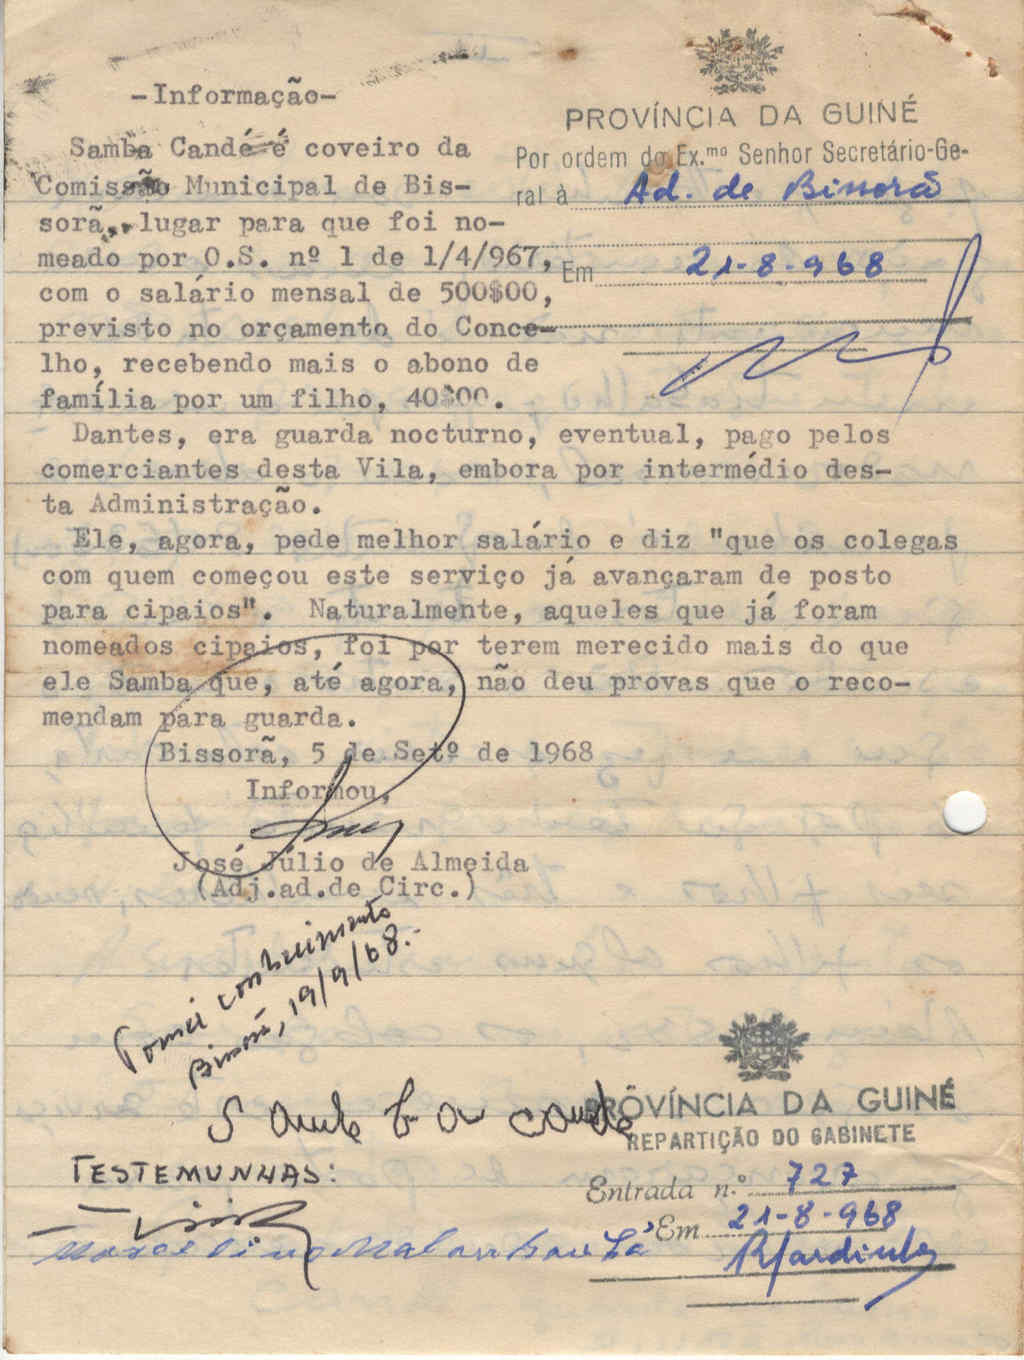 -Informação-
Samba Candé é coveiro da
Comissão Municipal de Bis-
sorã, lugar para que foi no-
meado por O.S. nº 1 de 1/4/967,
com o salário mensal de 500$00,
previsto no orçamento do Conce-
lho, recebendo mais o abono de
família por um filho, 40$00.
PROVÍNCIA DA GUINÉ
Por ordem do Ex.mo Senhor Secretário-Ge-
ral à Ad. de Bissorã
Em 21-8-968
Dantes, era guarda nocturno, eventual, pago pelos
comerciantes desta Vila, embora por intermédio des-
ta Administração.
Ele, agora, pede melhor salário e diz "que os colegas
com quem começou este serviço já avançaram de posto
para cipaios". Naturalmente, aqueles que já foram
nomeados cipaios, foi por terem merecido mais do que
ele Samba que, até agora, não deu provas que o reco-
mendam para guarda.
Bissorã, 5 de Setº de 1968
Informou,
José Júlio de Almeida
(Adj.ad.de Circ.)
Tomei conhecimento
Bissorã, 19/9/68.-
Samba cande
TESTEMUNHAS:
PROVÍNCIA DA GUINÉ
REPARTIÇÃO DO GABINETE
Entrada n.º 727
Em 21-8-968